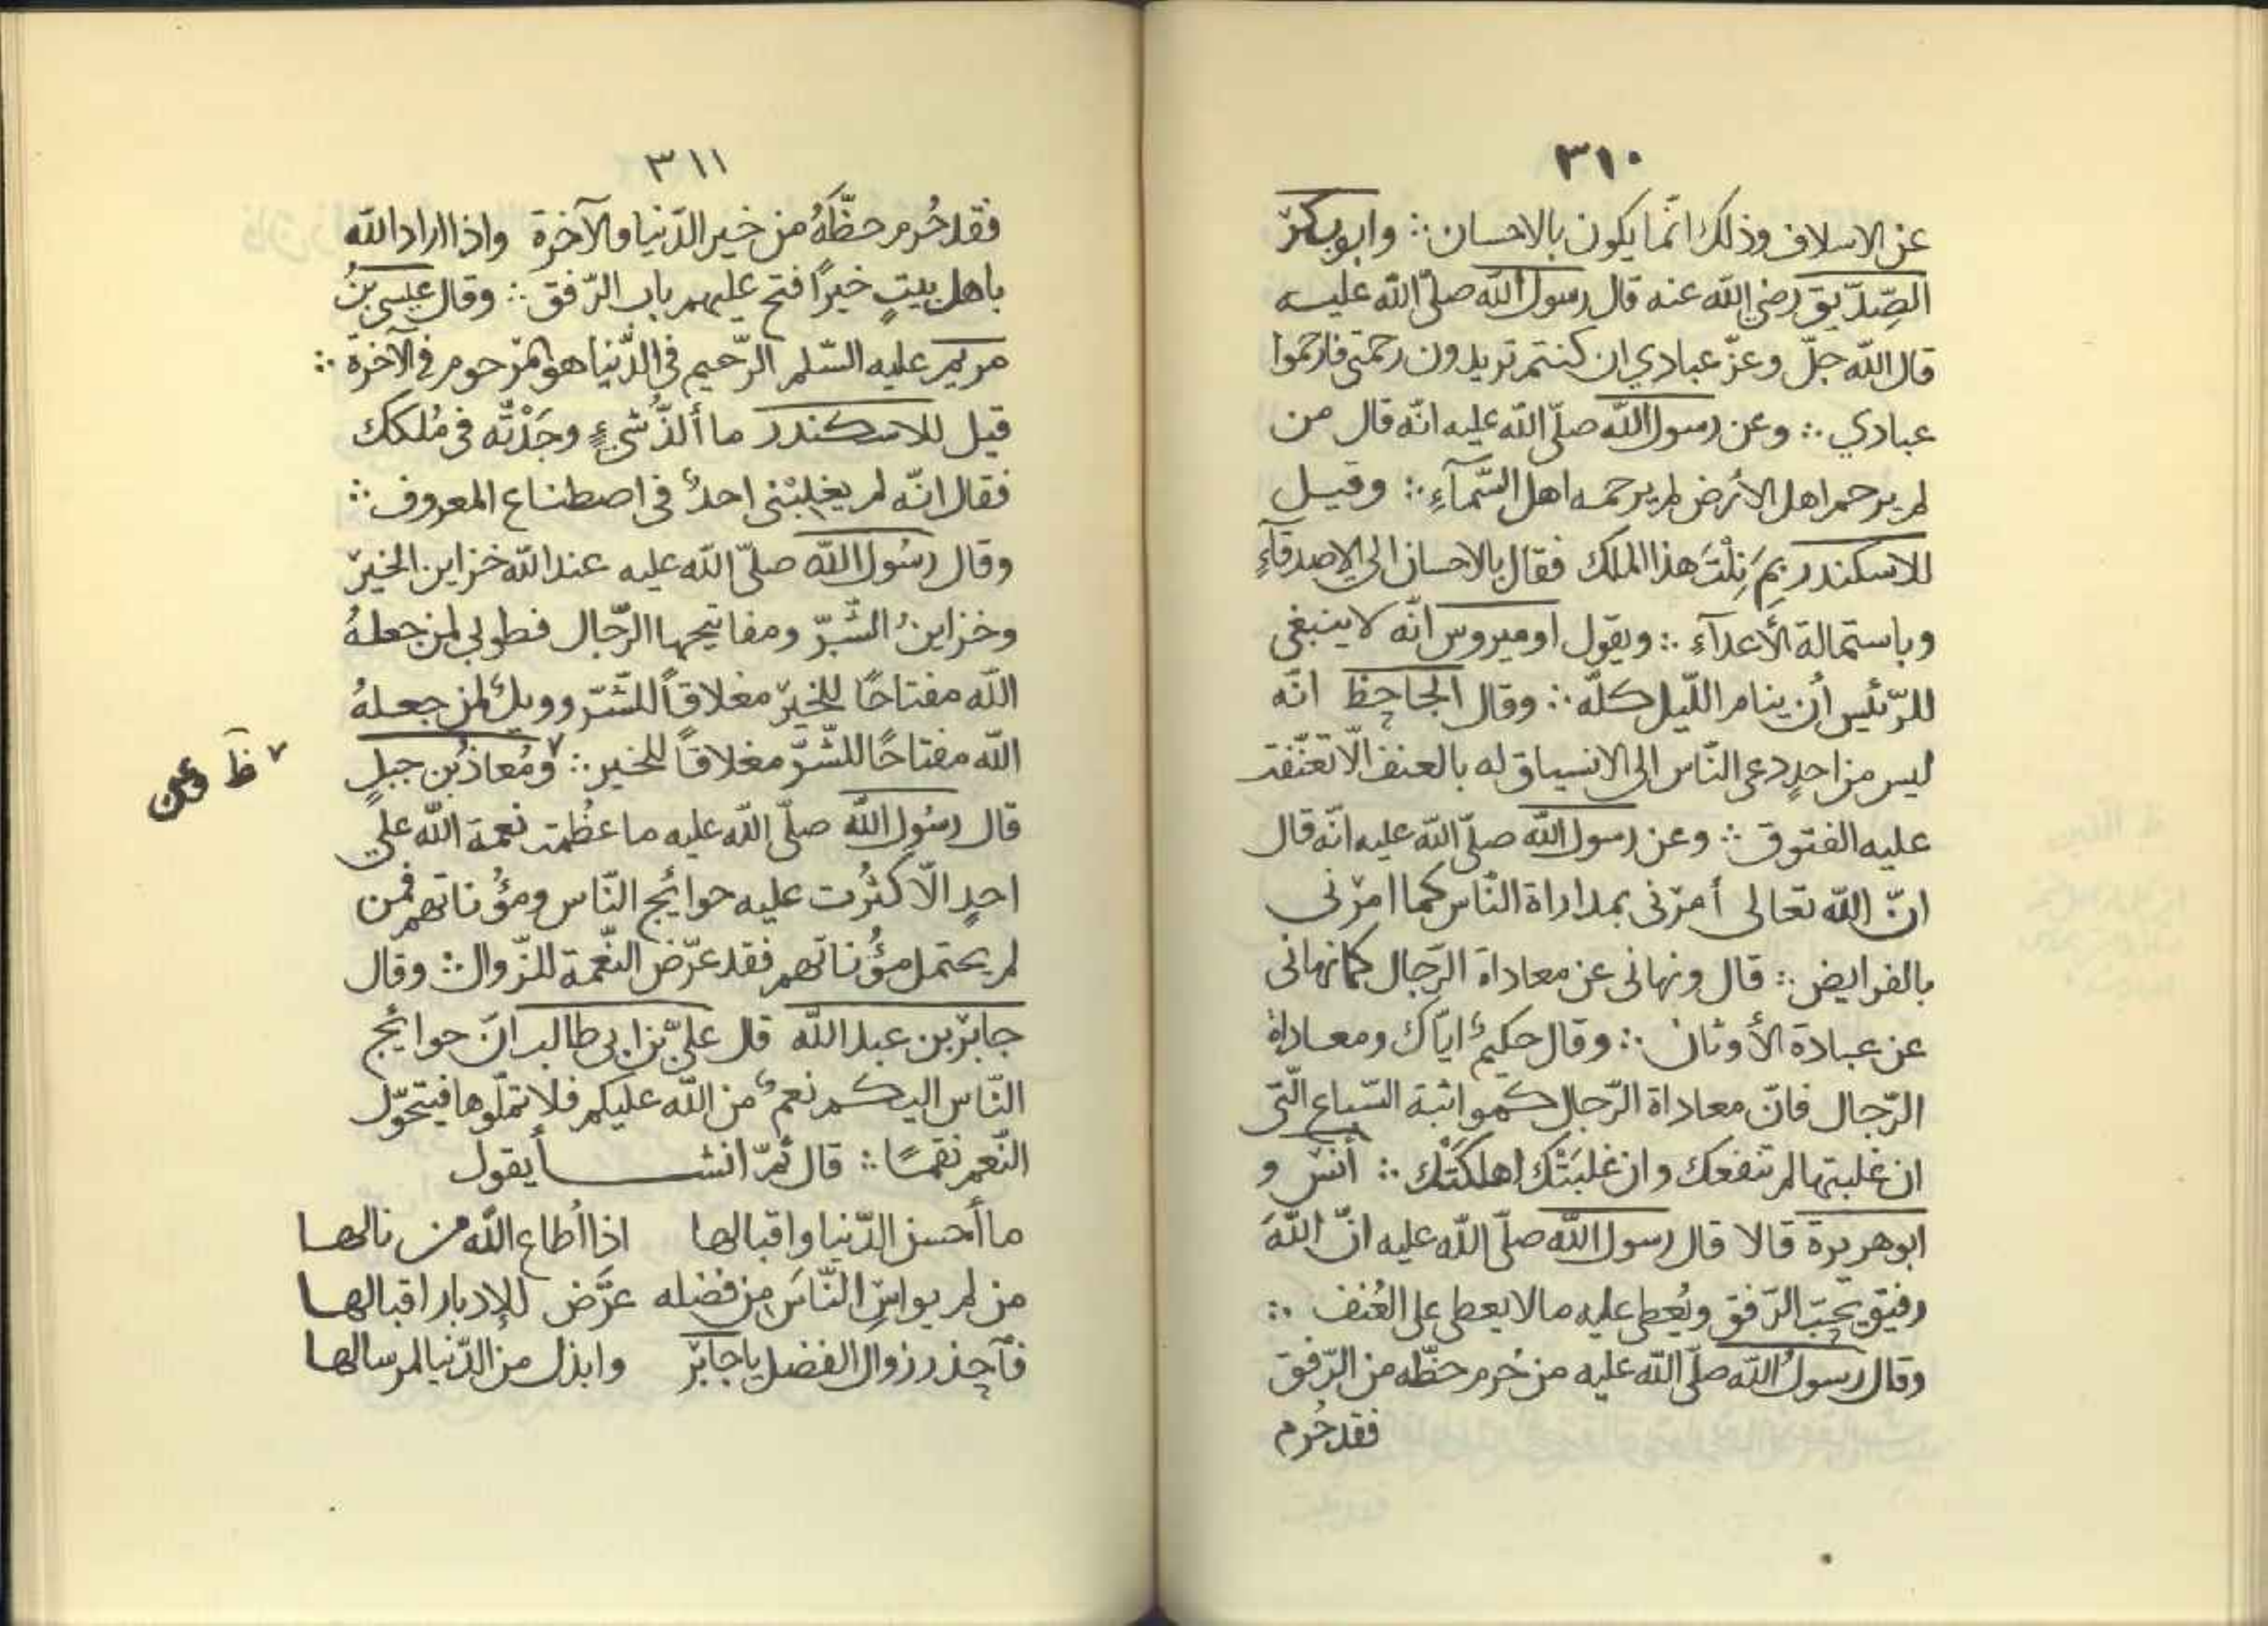 ٣١٠
عن الاسلاف وذلك انّما يكون بالاحسان ∴ وابوبكرٍ
الصِّدّيق رضي الله عنه قال رسول الله صلّى الله عليه
قال الله جلّ وعزّ عبادي ان كنتم تريدون رحمتي فارحموا
عبادي ∴ وعن رسول الله صلّى الله عليه انّه قال من
لم يرحم اهل الأرض لم يرحمه اهل السّمآءِ ∴ وقيل
للاسكندر بِمَ نِلْتَ هذا الملك فقال بالاحسان الى الاصدقآءِ
وباستمالة الأعدآءِ ∴ ويقول اوميروس انّه لا ينبغى
للرّئيس أن ينام اللّيل كلّه ∴ وقال الجاحظ انّه
ليس من احدٍ دعى النّاس الى الانسياق له بالعنف الّا تعنّفت
عليه الفتوق ∴ وعن رسول الله صلّى الله عليه انّه قال
انّ الله تعالى أمرَنى بمداراة النّاس كما امرَنى
بالفرايض ∴ قال ونهانى عن معاداة الرّجال كما نهانى
عن عبادة الأوثان ∴ وقال حكيمٌ ايّاك ومعاداة
الرّجال فانّ معاداة الرّجال كمواثبة السّباع الّتى
ان غلبتها لم تنفعك وان غلبَتْك اهلكَتْك ∴ أنس و
ابوهريرة قالا قال رسول الله صلّى الله عليه انّ اللّهَ
رفيق يحبّ الرّفق ويُعطى عليه مالا يعطى على العُنف ∴
وقال رسولُ الله صلّى الله عليه من حُرم حظّه من الرّفق
فقد حُرم
٣١١
فقد حُرم حظّهُ من خير الدّنيا والآخرة واذا اراد الله
باهل بيتٍ خيرًا فتح عليهم باب الرّفق ∴ وقال عيسى بنُ
مريم عليه السّلم الرّحيم فى الدُّنيا هو المرحوم فى الآخرة ∴
قيل للاسكندر ما ألذُّ شىءٍ وجَدْتَّه فى مُلكك
فقال انّه لم يغلِبْنى احدٌ فى اصطناع المعروف ∴
وقال رسُول الله صلّى الله عليه عند الله خزاين الخيرِ
وخزاينُ الشّرّ ومفاتيحها الرّجال فطوبى لمن جعلهُ
الله مفتاحًا للخيرِ مغلاقاً للشّرّ وويلٌ لمن جعلهُ
الله مفتاحًا للشّرّ مغلاقاً للخير ∴ ٧ ومُعاذُ بن جبلٍ
٧ ظَ وعن
قال رسُول الله صلّى الله عليه ما عظُمت نعمة الله على
احدٍ الّا كثُرت عليه حوائج النّاس ومؤُناتهم فمن
لم يحتمل مؤُناتهم فقد عرّض النّعمة للزّوال ∴ وقال
جابرُ بن عبد الله قال علىّ بن ابى طالب انّ حوائج
النّاس اليكم نعمٌ من الله عليكم فلا تملّوها فيتحوّل
النّعم نقمًا ∴ قال ثمّ انشأ يقول
ما أحسن الدّنيا واقبالها اذا أطاع الله من نالها
من لم يواسِ النّاسَ من فضله عرَّض للإدبار اقبالها
فآحذر زوال الفضل يا جابرُ وابذل من الدّنيا لمن سالها